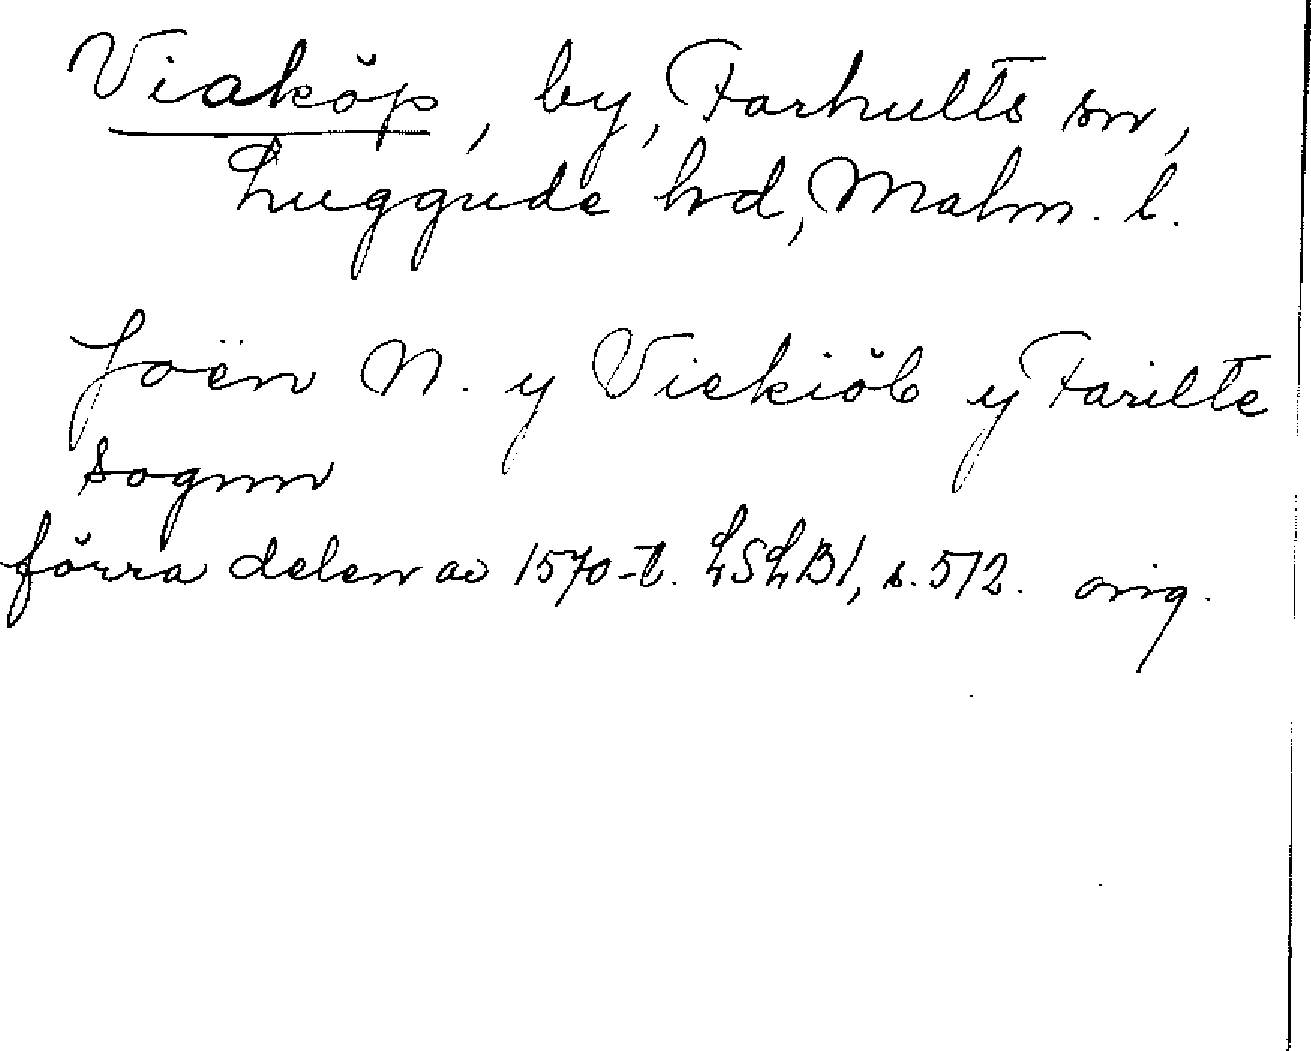 Viaköp, by, Farhults sn,
Luggude hd, Malm. l.
Joën N. y Viekiöb y Farilte
sognn
förra delen av 1570-t. LSLB1, s. 512. orig.